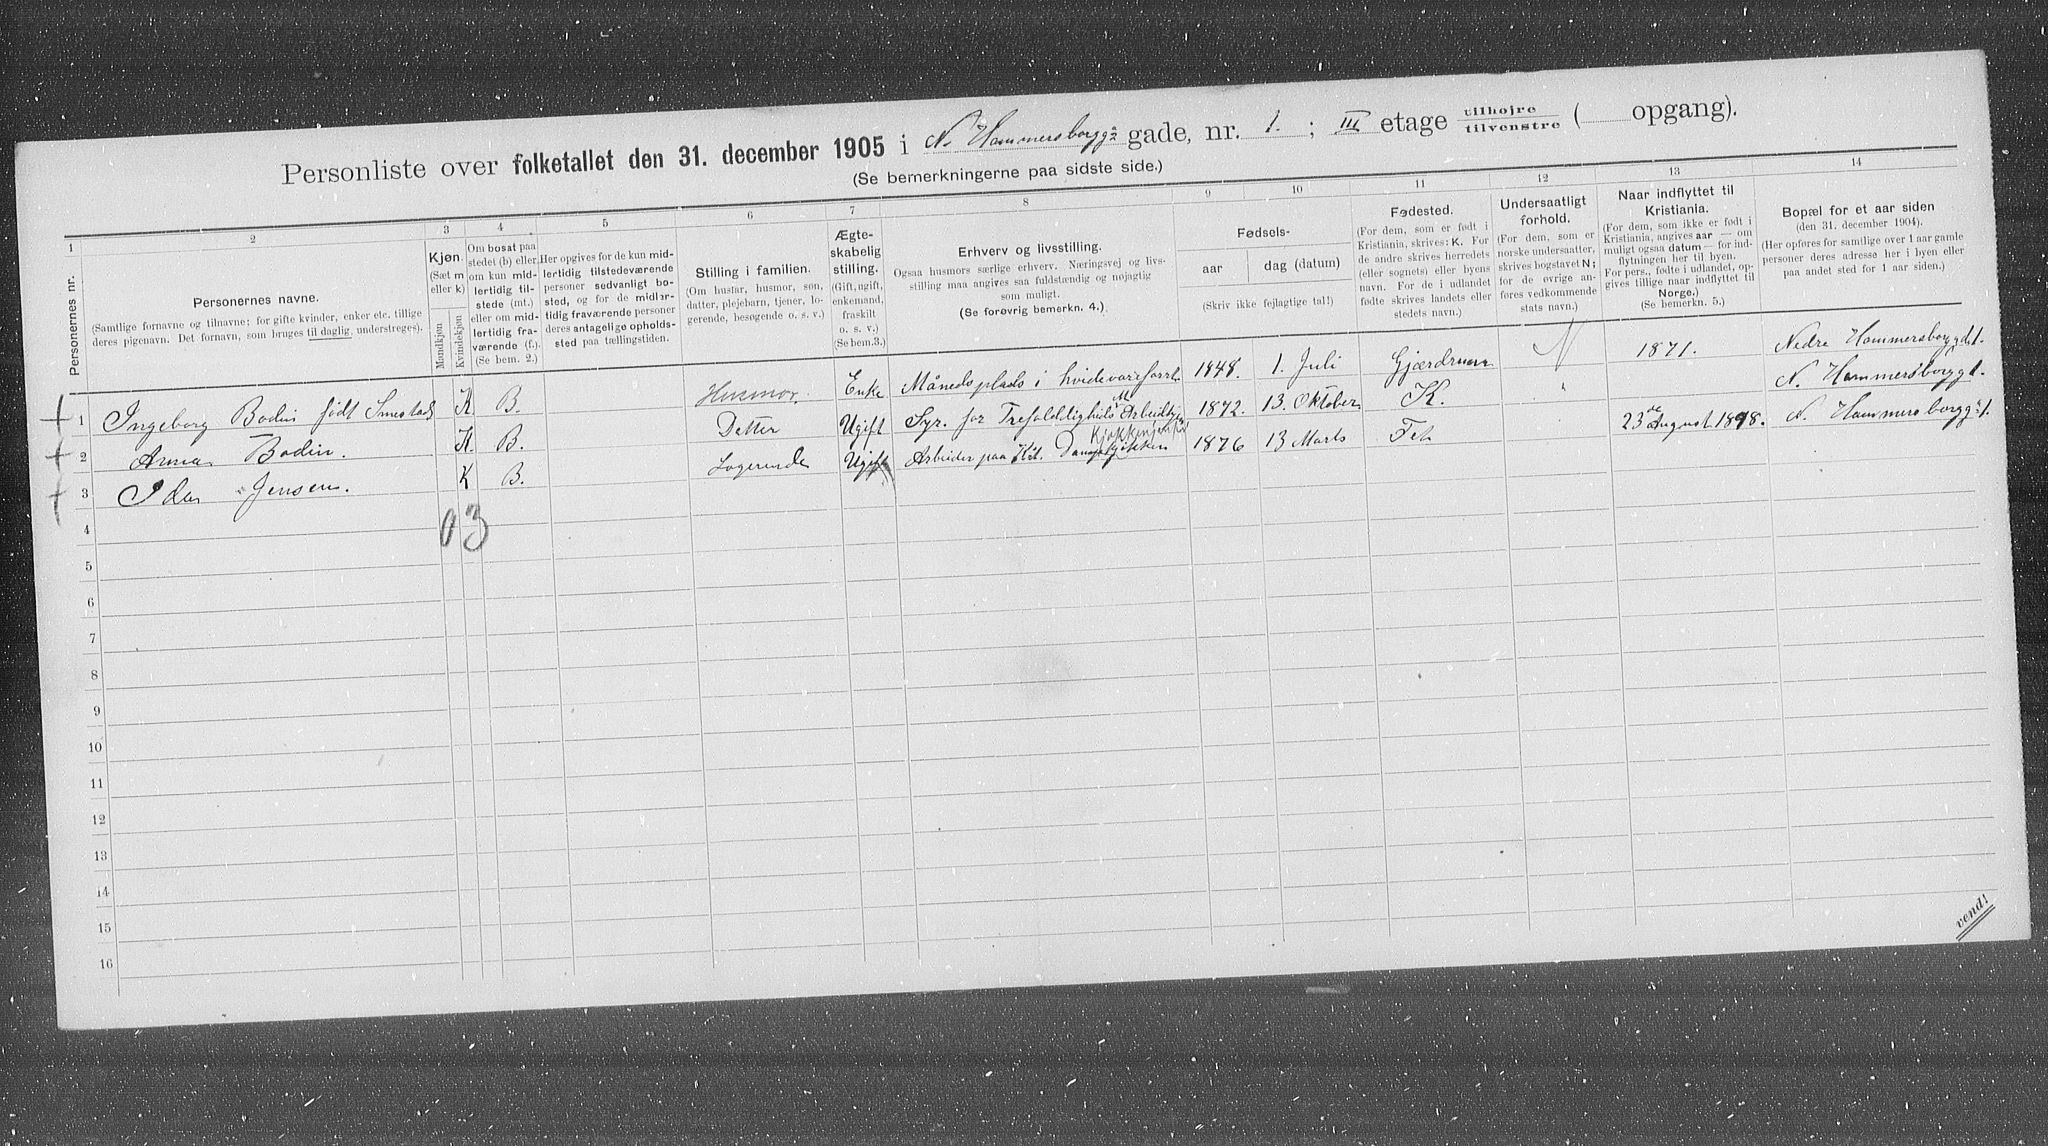 Personliste over folketallet den 31. december 1905 i N. Hammersborgg: gade, nr. 1. ; III etage tilhøjre tilvenstre ( opgang).
(Se bemerkningerne paa sidste side.)
1 2 3 4 5 6 7 8 9 10 11 12 13 14
Personernes nr.
Personernes navne.
(Samtlige fornavne og tilnavne; for gifte kvinder, enker etc. tillige
deres pigenavn. Det fornavn, som bruges til daglig, understreges).
Kjøn.
(Sæt m
eller k)
Mandkjøn
Kvindekjøn
Om bosat paa
stedet (b) eller
om kun mid-
lertidig til-
stede (mt.)
eller om mid-
lertidig fra-
værende (f.).
(Se bem. 2.)
Her opgives for de kun mid-
lertidig tilstedeværende
personer sedvanligt bo-
sted, og for de midler-
tidig fraværende personer
deres antagelige opholds-
sted paa tællingstiden.
Stilling i familien.
(Om husfar, husmor, søn,
datter, plejebarn, tjener, lo-
gerende, besøgende o. s. v.)
Ægte-
skabelig
stilling.
(Gift, ugift,
enkemand,
fraskilt
o. s. v.)
(Se bem. 3.)
Erhverv og livsstilling.
Ogsaa husmors særlige erhverv. Næringsvej og livs-
stilling maa angives saa fuldstændig og nøjagtig
som muligt.
(Se forøvrig bemerkn. 4.)
Fødsels-
aar
dag (datum)
(Skriv ikke fejlagtige tal!)
Fødested.
(For dem, som er født i
Kristiania, skrives: K. For
de andre skrives herredets
(eller sognets) eller byens
navn. For de i udlandet
fødte skrives landets eller
stedets navn.)
Undersaatligt
forhold.
(For dem, som er
norske undersaatter,
skrives bogstavet N;
for de øvrige an-
føres vedkommende
stats navn.)
Naar indflyttet til
Kristiania.
(For dem, som ikke er født i
Kristiania, angives aar — om
muligt ogsaa datum — for ind-
flytningen her til byen.
For pers., fødte i udlandet, op-
gives tillige naar indflyttet til
Norge.)
(Se bemerkn. 5.)
Bopæl for et aar siden
(den 31. december 1904).
(Her opføres for samtlige over 1 aar gamle
personer deres adresse her i byen eller
paa andet sted for 1 aar siden.)
1 Ingeborg Bodin født Smestad K B. Husmor. Enke Månedsplads i hvidevareforr. 1848. 1. Juli Gjærdrum N 1871. Nedre Hammersborggd 1.
2 Anna Bodin. K B. Detter Ugift Syr. for Trefoldigheds M Arbeidk 1872. 13. Oktober K. " N. Hammersborggt 1.
3 Ida Jensen. K B. Logerende Ugift Arbeider paa Kr. Dampkjøkken 1876 13 Marts Fet 23de August 1898. N. Hammersborgg: 1.
4
0 3
5
6
7
8
9
10
11
12
13
14
15
16
vend!